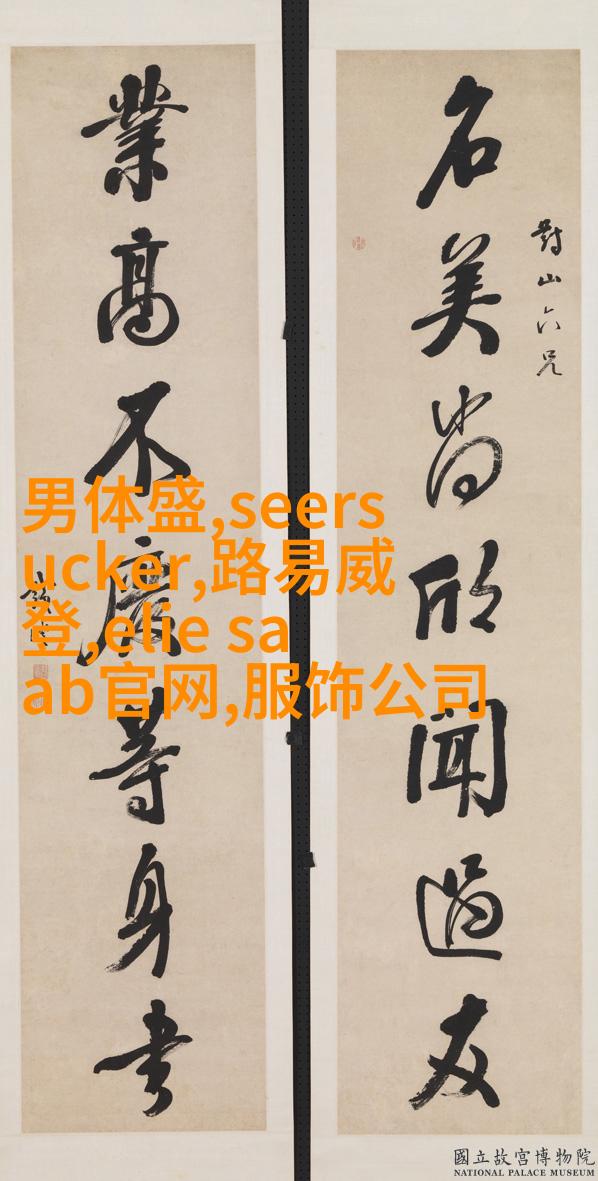 對山六兄
名美尚欣聞過友
業高不廢等身書
男体盛,seers
ucker,路易威
登,elie sa
ab官网,服饰公司
國立故宮博物院
NATIONAL PALACE MUSEUM